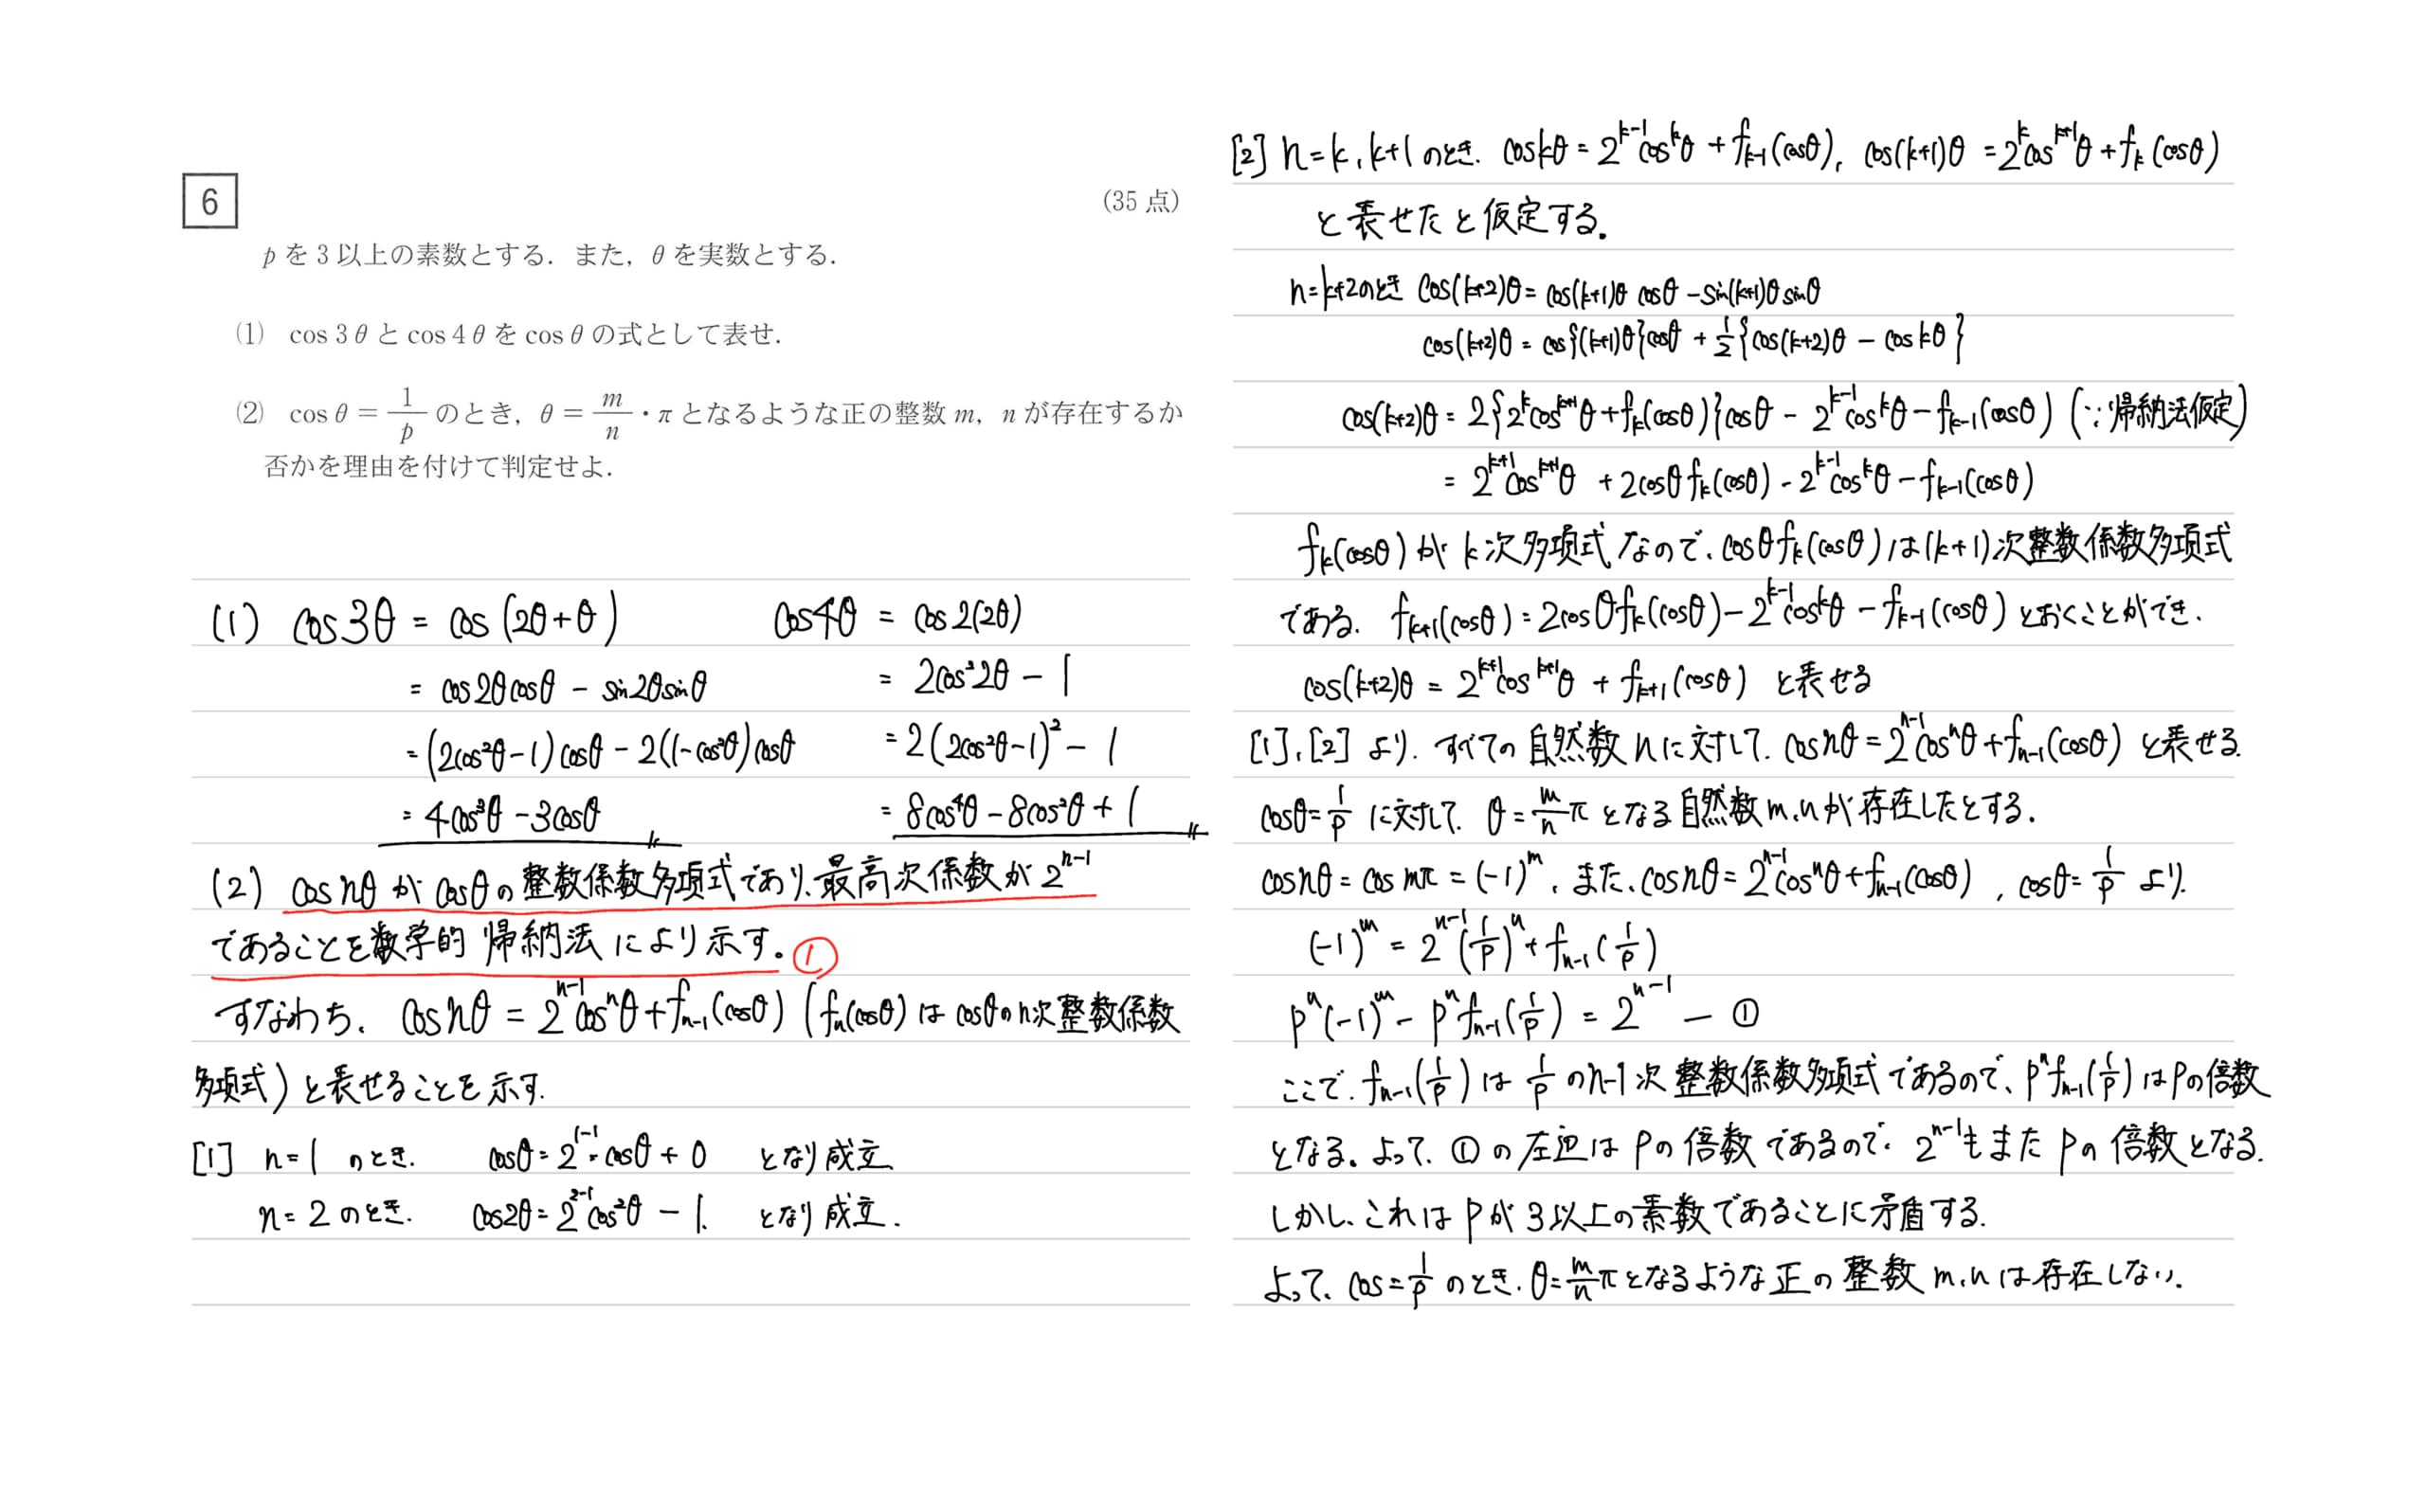 6
(35 点)
p を 3 以上の素数とする．また，θ を実数とする．
(1) cos 3θ と cos 4θ を cos θ の式として表せ．
(2) cos θ = 1/p のとき，θ = m/n・π となるような正の整数 m，n が存在するか
否かを理由を付けて判定せよ．
(1) cos3θ = cos(2θ+θ)
= cos2θcosθ − sin2θsinθ
= (2cos²θ−1)cosθ − 2(1−cos²θ)cosθ
= 4cos³θ − 3cosθ
cos4θ = cos2(2θ)
= 2cos²2θ − 1
= 2(2cos²θ−1)² − 1
= 8cos⁴θ − 8cos²θ + 1
(2) cosnθ が cosθの整数係数多項式であり、最高次係数が 2^{n-1}
であることを数学的 帰納法により示す。①
すなわち、cosnθ = 2^{n-1}cos^nθ + f_{n-1}(cosθ) (f_n(cosθ) は cosθのn次整数係数
多項式) と表せることを示す.
[1] n=1 のとき. cosθ = 2^{1-1}・cosθ + 0 となり成立
n=2 のとき. cos2θ = 2^{2-1}cos²θ − 1. となり成立.
[2] n=k, k+1 のとき. coskθ = 2^{k-1}cos^kθ + f_{k-1}(cosθ), cos(k+1)θ = 2^k cos^{k+1}θ + f_k(cosθ)
と表せたと仮定する.
n=k+2のとき cos(k+2)θ = cos(k+1)θ cosθ − sin(k+1)θ sinθ
cos(k+2)θ = cos{(k+1)θ}cosθ + 1/2{cos(k+2)θ − coskθ}
cos(k+2)θ = 2{2^k cos^{k+1}θ + f_k(cosθ)}cosθ − 2^{k-1}cos^kθ − f_{k-1}(cosθ) (∵帰納法仮定)
= 2^{k+1}cos^{k+1}θ + 2cosθf_k(cosθ) − 2^{k-1}cos^kθ − f_{k-1}(cosθ)
f_k(cosθ) が k次多項式なので、cosθf_k(cosθ) は(k+1)次整数係数多項式
である. f_{k+1}(cosθ) = 2cosθf_k(cosθ) − 2^{k-1}cos^kθ − f_{k-1}(cosθ) とおくことができ.
cos(k+2)θ = 2^{k+1}cos^{k+1}θ + f_{k+1}(cosθ) と表せる
[1],[2] より. すべての自然数nに対して. cosnθ = 2^{n-1}cos^nθ + f_{n-1}(cosθ) と表せる.
cosθ = 1/p に対して. θ = m/n π となる自然数m,nが存在したとする.
cosnθ = cos mπ = (−1)^m, また、cosnθ = 2^{n-1}cos^nθ + f_{n-1}(cosθ), cosθ = 1/p より.
(−1)^m = 2^{n-1}(1/p)^n + f_{n-1}(1/p)
p^n(−1)^m − p^n f_{n-1}(1/p) = 2^{n-1} − ①
ここで. f_{n-1}(1/p) は 1/p のn-1次 整数係数多項式であるので、p^n f_{n-1}(1/p) はpの倍数
となる。よって. ①の左辺はpの倍数であるので. 2^{n-1}もまたpの倍数となる.
しかし、これはpが3以上の素数であることに矛盾する.
よって、cos = 1/p のとき. θ = m/n π となるような正の整数m,nは存在しない.